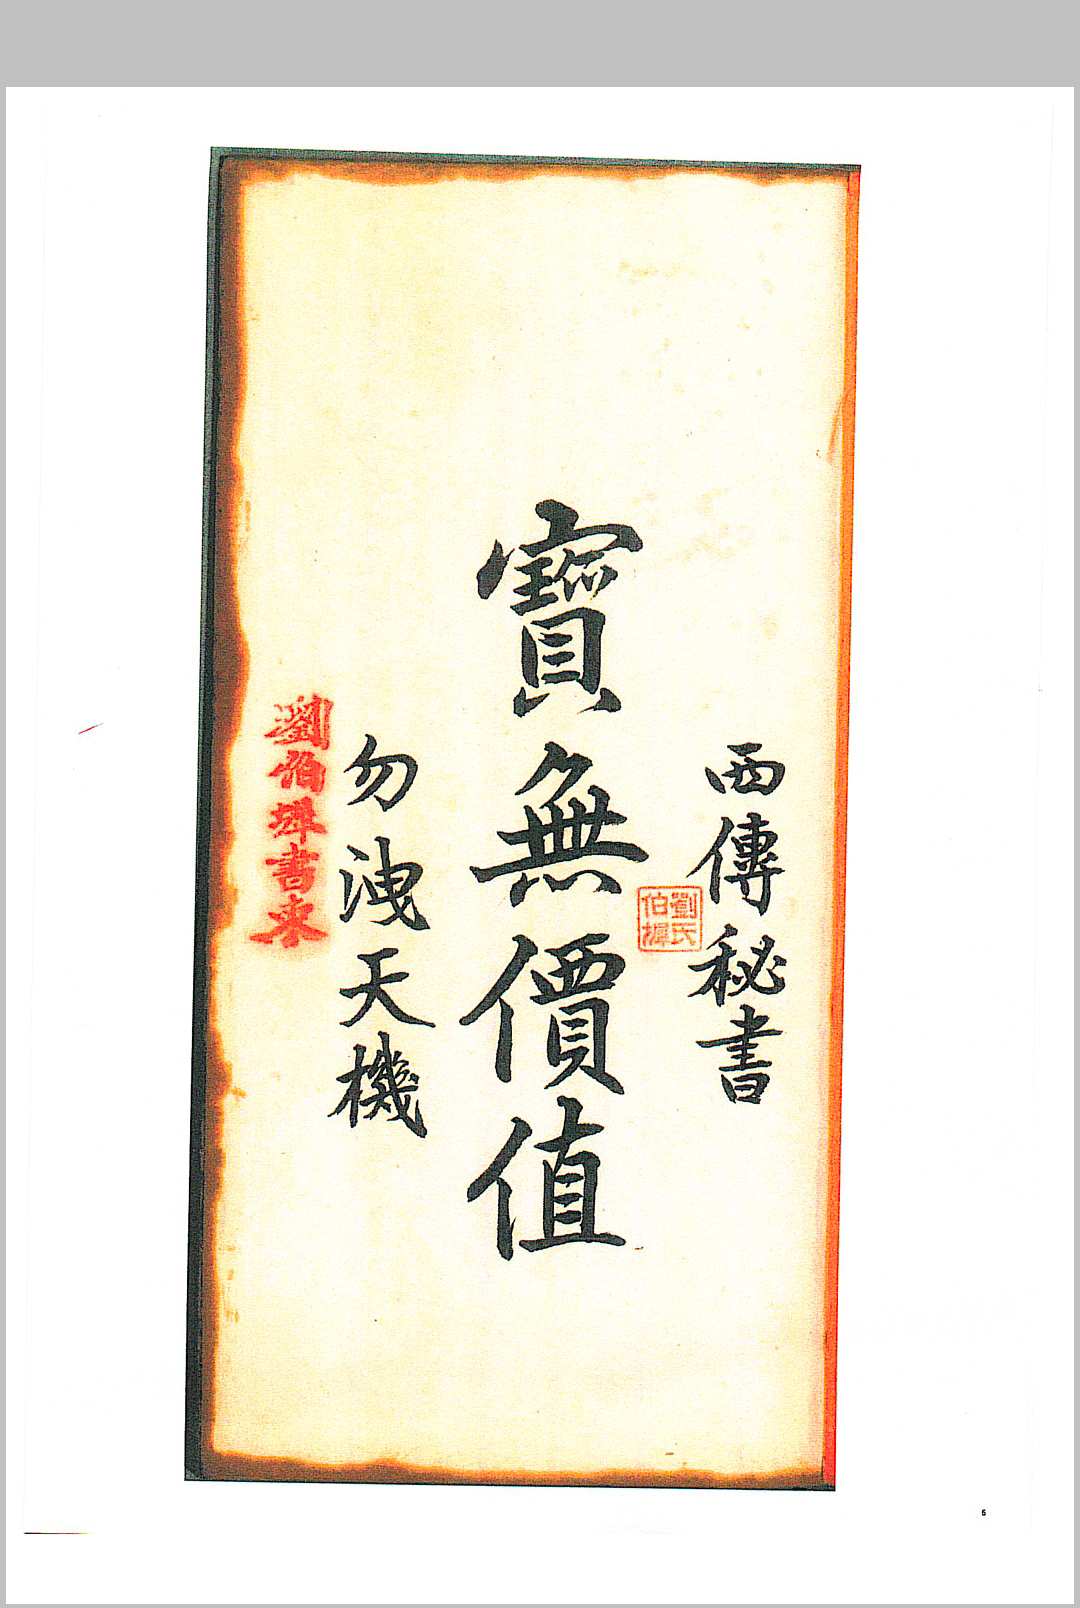 西傳秘書
劉氏
伯
寶無價值
勿洩天機
劉伯 書